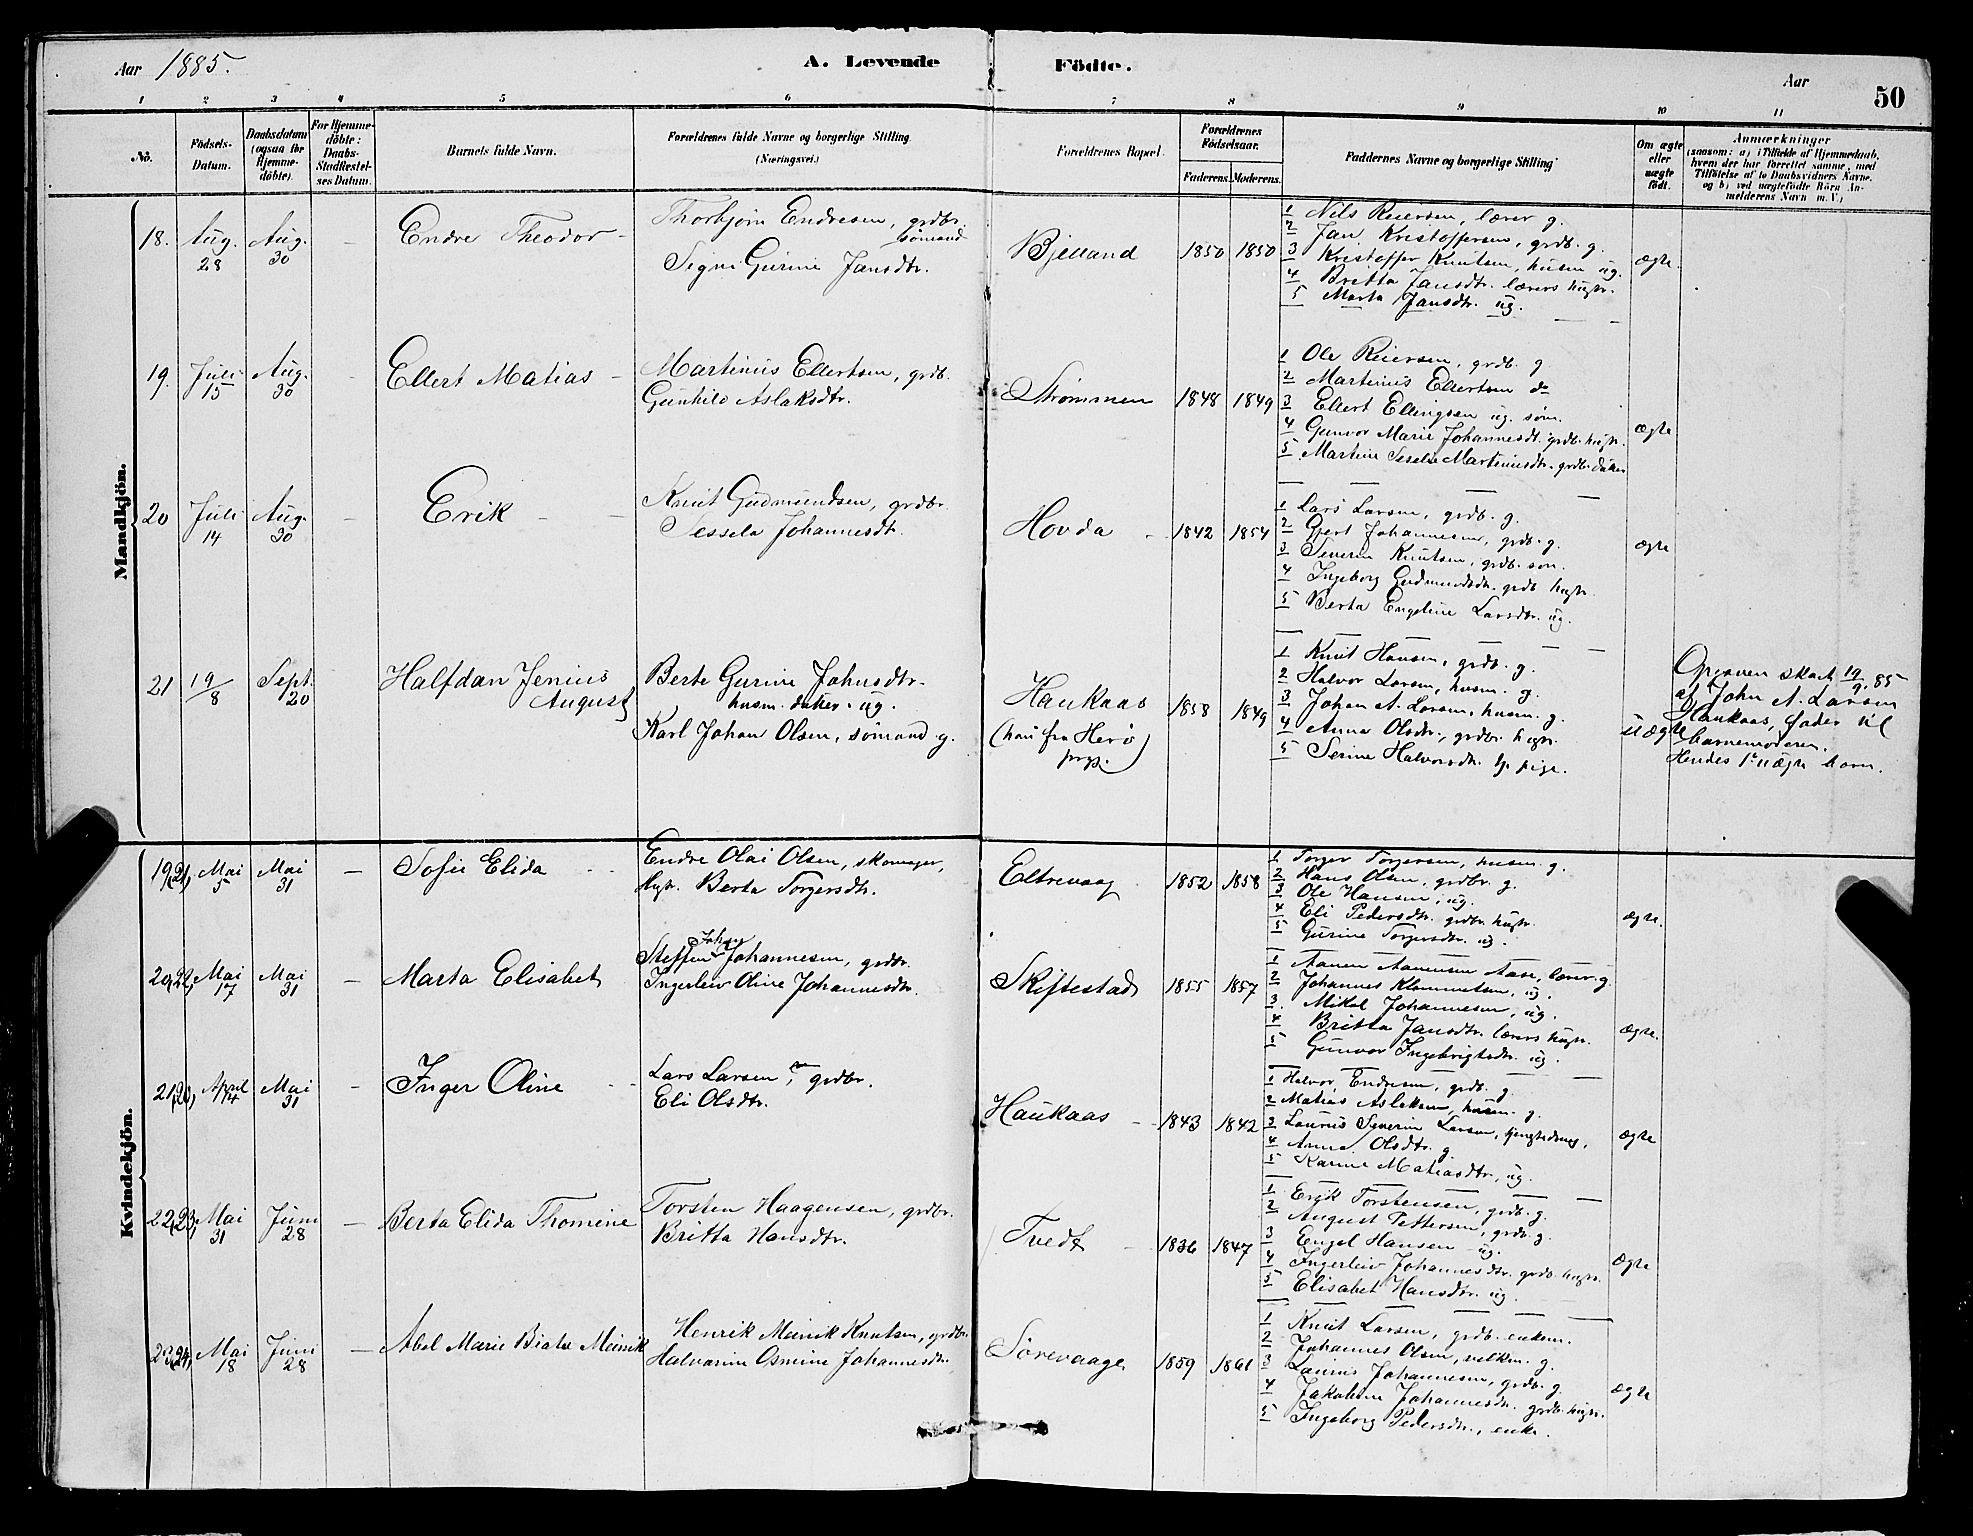 Aar 1885. A. Levende Födte. Aar 50
1 2 3 4 5 6 7 8 9 10 11
No. Födsels-Datum. Daabsdatum (ogsaa for Hjemme-döbte). For Hjemme-döbte: Daabs-Stadfæstel-ses Datum. Barnets fulde Navn. Forældrenes fulde Navne og borgerlige Stilling (Næringsvei.) Forældrenes Bopæl. Forældrenes Födselsaar. Faderens. Moderens. Faddernes Navne og borgerlige Stilling Om ægte eller uægte födt. Anmærkninger (saasom: a) i Tilfælde af Hjemmedaab, hvem der har forrettet samme, med Tilföielse af to Daabsvidners Navne, og b) ved uægtefödte Börn, An-melderens Navn m. V.)
Mandkjön.
18. Aug. 28 Aug. 30 – Endre Theodor –
Thorbjørn Endresen, grdbr. sømand
Signi Gurine Jansdtr.
Bjelland 1850 1850
1 Nils Reiersen, lærer g.
2 Jan Kristoffersen, grdb. g.
3 Kristoffer Knutsen, husm ug.
4 Britta Jansdtr. lærers hustr.
5 Marta Jansdtr. ug.
ægte
19. Juli 15 Aug. 30 Ellert Matias –
Martinius Ellertsen, grdb.
Gunhild Aslaksdtr.
Strømmen 1848 1849
1 Ole Reiersen, grdb. g
2 Martinius Ellertsen do
3 Ellert Ellingsen ug. søm.
4 Gunvor Marie Johannesdt. grdb. hustr.
5 Martine Sesele Martiniusdtr. grdb. datter
ægte
20 Juli 14 Aug. 30 – Erik –
Knut Gudmundsen, grdbr.
Sessela Johannesdt.
Hovda 1842 1854
1 Lars Larsen, grdb. g.
2 Gjert Johannesen, grdb. g.
3 Severin Knutsen, grdb. søn.
4 Ingeborg Gudmundsdtr. grdb hustr.
5 Berta Engeline Larsdtr. ug.
ægte
21 19/8 Sept. 20 Halfdan Jenius August
Berte Gurine Johnsdtr.
husm. datter. ug.
Karl Johan Olsen, sømand g.
Haukaas
(han fra Herö
prgj.)
1858 1849
1 Knut Hansen, grdb. g.
2 Halvor Larsen, husm. g.
3 Johan A. Larsen, husm. g.
4 Anna Olsdtr., grdbr. hustr.
5 Serine Halvorsdtr. tj. pige.
uægte
Opgaven skedt 19/9. 85
af John A. Larsen
Haukaas, fader til
barnemoderen.
Hendes 1ste uægte barn.
Kvindekjön.
19, (21, Mai 5 Mai 31 – Sofie Elida
Endre Olai Olsen, skomager,
Hustr. Berta Torgersdtr.
Eltrevaag 1852 1858
1 Torger Torgersen, husm. g.
2 Hans Olsen, grdbr. g.
3 Ole Hansen, ug.
4 Eli Pedersdtr. grdbr. hustr.
5 Gurine Torgersdtr. ug.
ægte.
20, (22, Mai 17 Mai 31 – Marta Elisabet
Steffen Johan Johannesen, grdbr.
Ingerleiv Oline Johannesdtr.
Skiftestad 1855 1857
1 Aanen Aanensen Aase, lærer g.
2 Johannes Klemmetsen, ug.
3 Mikal Johannesen, ug.
4 Britta Jansdtr. lærers hustr.
5 Gunvor Ingebrigtsdtr. ug.
ægte.
21, (20, April 14 Mai 31 – Inger Oline
Lars Larsen, grdbr.
Eli Olsdtr.
Haukaas 1843 1842
1 Halvor Endresen, grdb. g.
2 Matias Aslaksen, husm. g.
3 Laurits Severin Larsen,
4 Anna S. Olsdtr. g.
5 Karine Matiasdtr, ug.
ægte
22, (23, Mai 31 Juni 28 – Berta Elida Thomine
Torsten Haagensen, grdbr.
Britta Hansdtr.
Tvedt 1836 1847
1 Erik Torstensen, grdb. g.
2 August Pettersen, grdb. g.
3 Engel Hansen ug.
4 Ingerleiv Johannesdtr. grdb. hustr.
5 Elisabet Hansdtr. ug.
ægte
23, (24, Mai 18 Juni 28 – Abel Marie Biata Meinik
Henrik Meinik Knutsen, grdbr.
Halvarine Osmine Johannesdtr.
Sørevaage 1859 1861
1 Knut Larsen, grdb. enkem.
2 Johannes Olsen, velkm. g.
3 Laurits Johannesen, grdb. g.
4 Jakobine Johannesdtr. grdb. hustr.
5 Ingeborg Pedersdtr., enke.
ægte